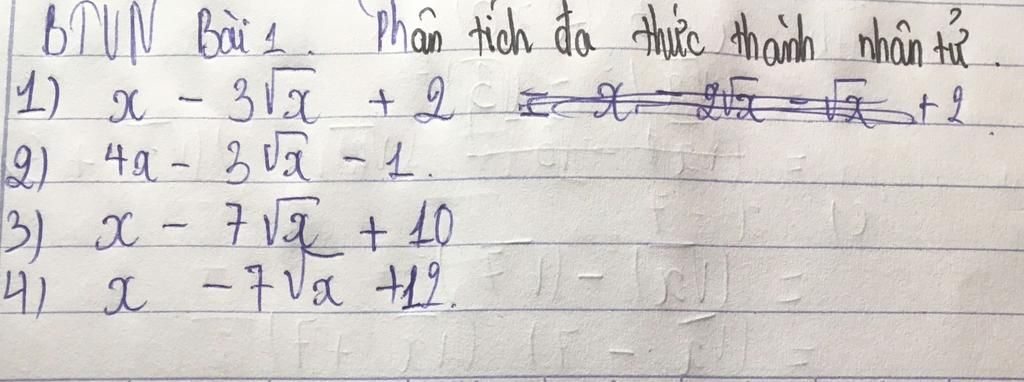 BTVN Bài 1. Phân tích đa thức thành nhân tử.
1) x - 3√x + 2 = x - 2√x - √x + 2
2) 4x - 3√x - 1.
3) x - 7√x + 10
4) x - 7√x + 12.